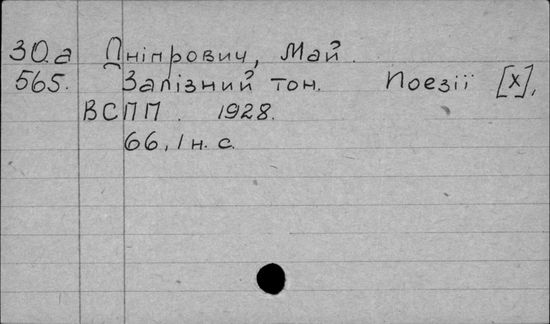 30.а Дніпрович, Май.
565. Залізний тон. Поезії [Х],
ВСПП. 1928.
66, 1 н. с.